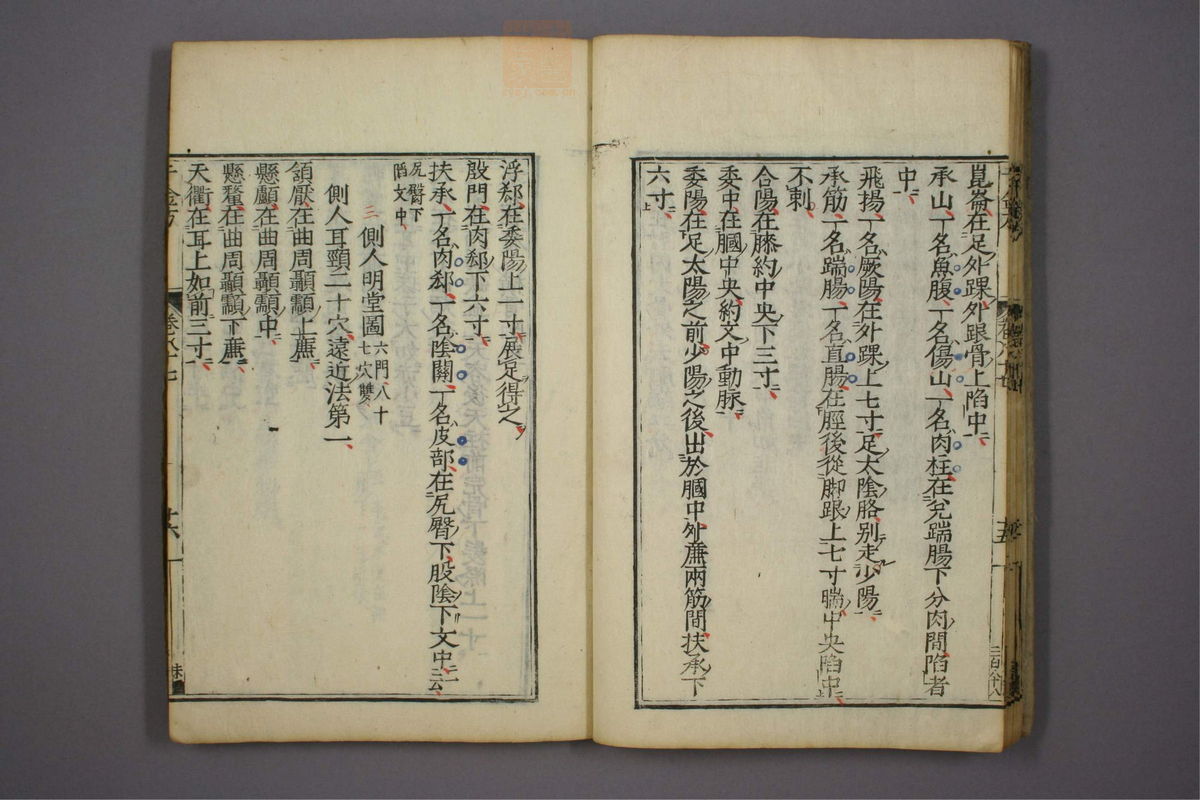 崑崙在足外踝外跟骨上陷中
承山一名魚腹一名傷山一名肉柱在兊踹腸下分肉間陷者
中
飛揚一名厥陽在外踝上七寸足太陰胳別走少陽
承筋一名踹腸一名直腸在脛後從脚跟上七寸踹中央陷中
不刺
合陽在膝約中央下三寸
委中在膕中央約文中動脉
委陽在足太陽之前少陽之後出於膕中外亷兩筋間扶承下
六寸
浮郄在委陽上一寸展足得之
殷門在肉郄下六寸
扶承一名肉郄一名陰關一名皮部在尻臀下股陰下文中一云
尻臀下
陷文中
側人明堂圖六門八十
七穴雙
側人耳頸二十穴遠近法第一
頷厭在曲周顳顬上亷
懸顱在曲周顳顬中
懸釐在曲周顳顬下亷
天衢在耳上如前三寸